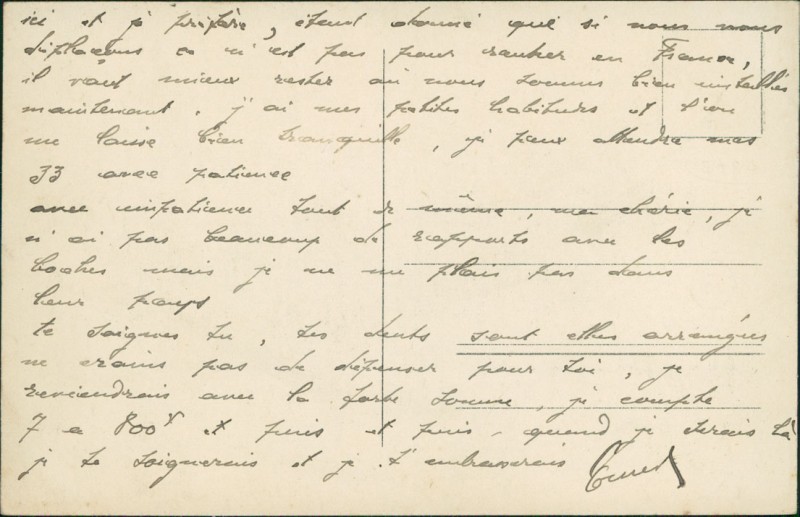 ici et je préfère, étant donné que si nous nous
déplaçons ce n'est pas pour rentrer en France,
il vaut mieux rester où nous sommes bien installés
maintenant, j'ai mes petites habitudes et l'on
me laisse bien tranquille, je peux attendre mes
33 avec patience
avec impatience tout de même, ma chérie, je
n'ai pas beaucoup de rapports avec les
boches mais je ne me plais pas dans
leur pays
te soignes tu, tes dents sont elles arrangées
ne crains pas de dépenser pour toi, je
reviendrais avec la forte somme, je compte
7 a 800 f et puis et puis - quand je serais là
je te soignerais et je t'embrasserais